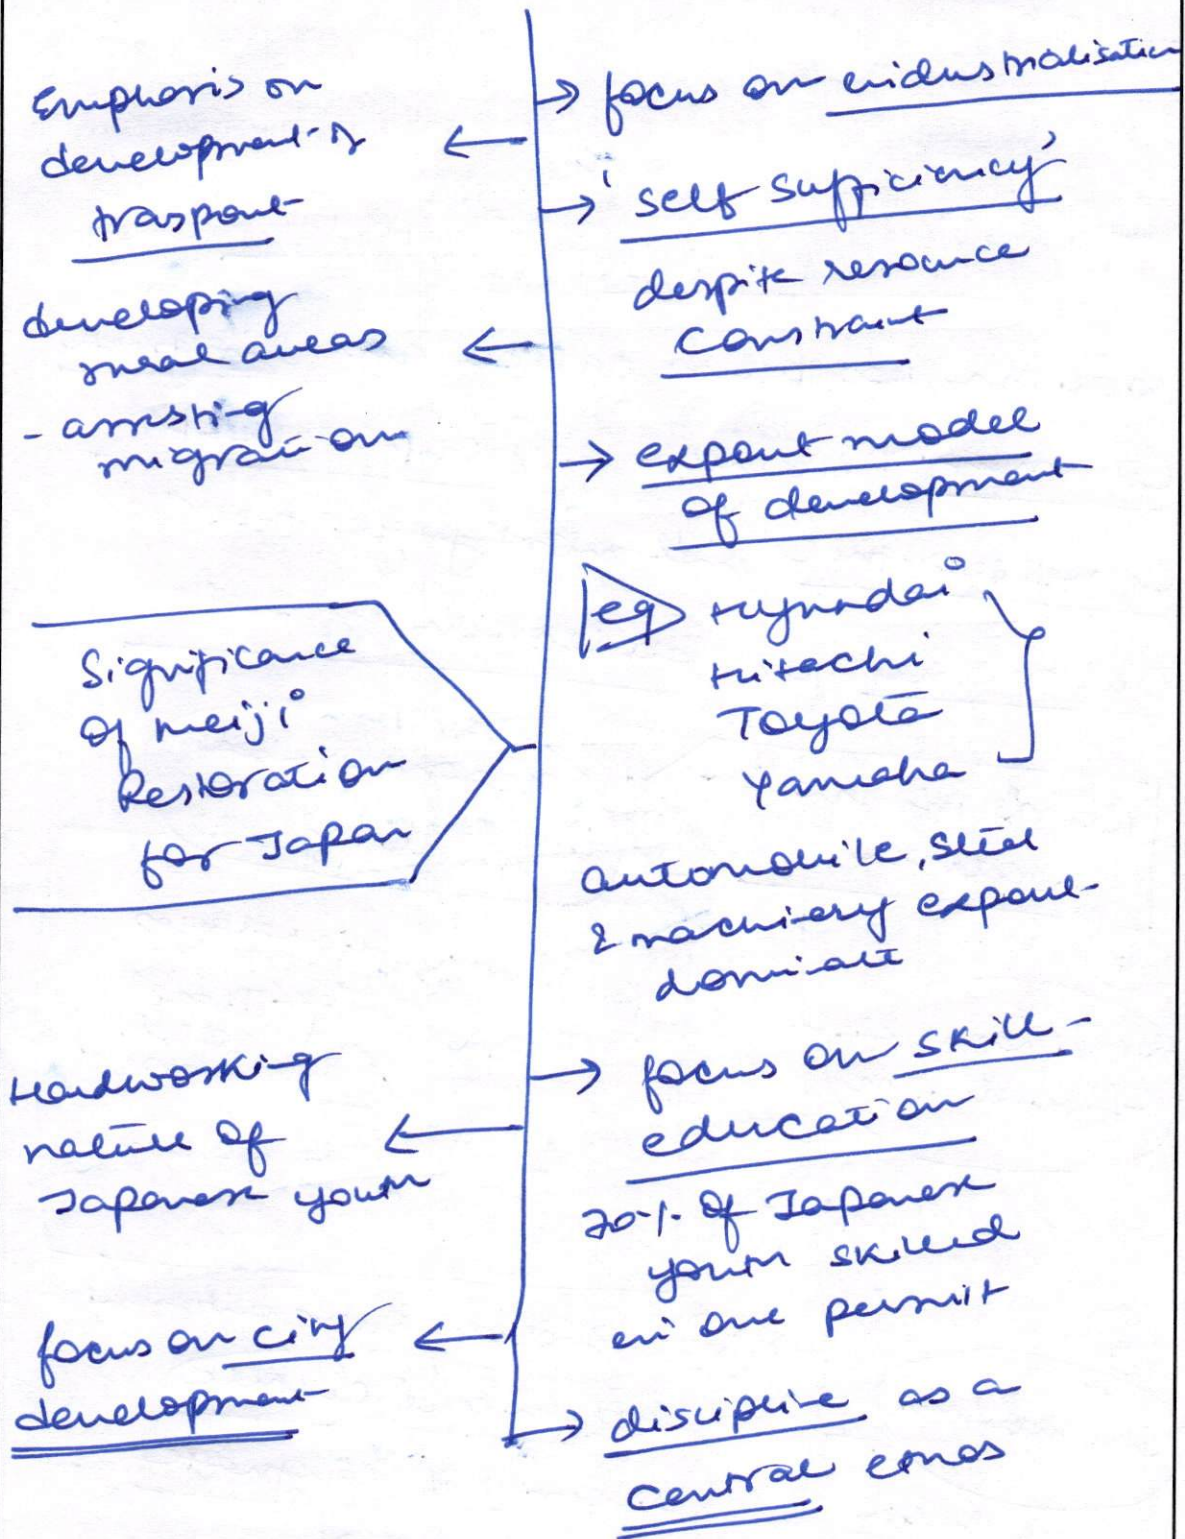 Emphasis on
development of
traspout
developing
rural areas
- arresting
migration
Significance
of Meiji
Restoration
for Japan
Hardworking
nature of
Japanese youth
focus on city
development
→ focus on industrialisation
→ 'self sufficiency'
despite resource
constraint
→ export model
of development
eg Hyundai
Hitachi
Toyota
Yamaha
automobile, steel
& machinery export
dominate
→ focus on skill -
education
70% of Japanese
youth skilled
in one
→ discipline as a
central ethos